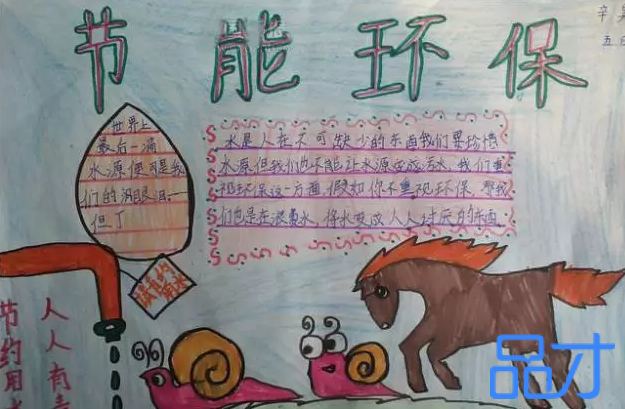 节能环保
辛
五
世界上
最后一滴
水源便可是我
们的泪眼泪
但丁
水是人在不可缺少的东西我们要珍惜
水源但我们也不能让水源变成污水,我们重
视环保这一方面,假如你不重视环保,
们也是在浪费水,水变成人人讨厌的东西
人人有
节约用水
品才